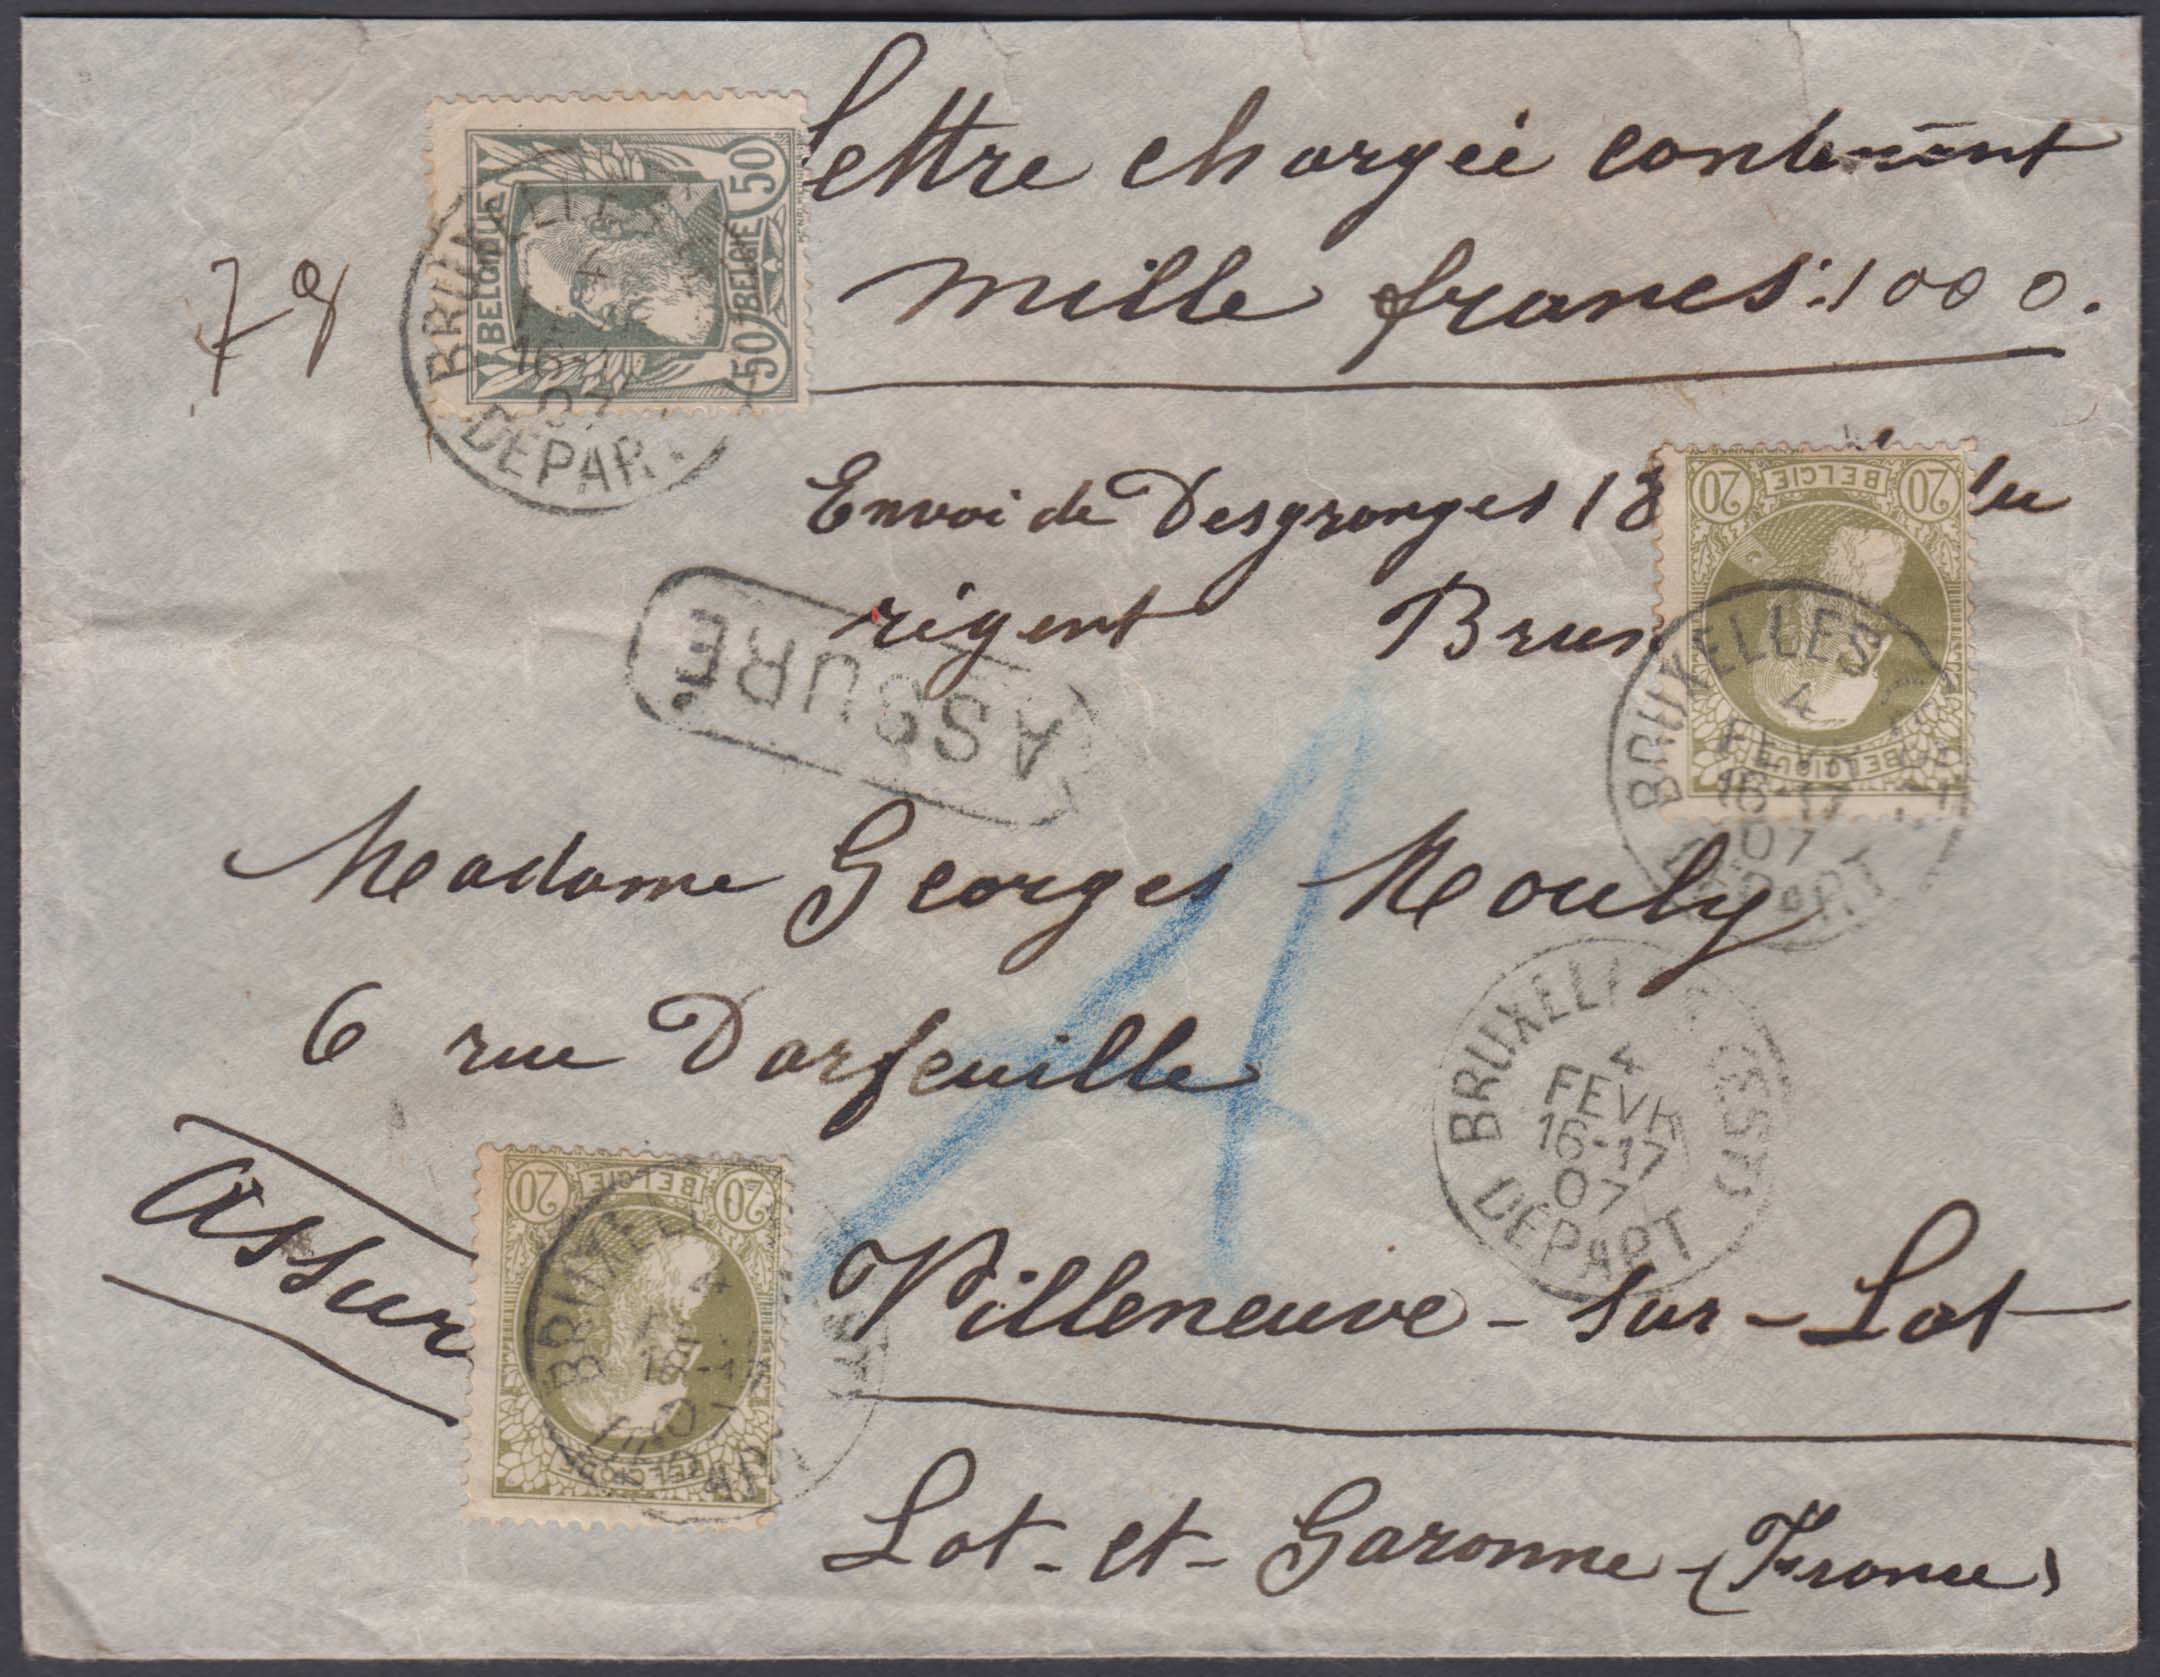 Lettre chargée contenant
mille francs: 1000.
7 g
BELGIQUE
BELGIE
50 50
BRUXELLES
4
16-1
07
DEPART
Envoi de Desgranges 18 du
rigent Brux
20 BELGIE 20
BELGIQUE
BRUXELLES
4
FEVR
16-17
07
DEPART
ASSURÉ
Madame Georges Mouly
6 rue Darfeuille
A
BRUXELLES (EST)
4
FEVR
16-17
07
DEPART
Assur
20 BELGIE 20
BELGIQUE
BRUXELLES
4
Villeneuve-sur-Lot
Lot-et-Garonne (France)